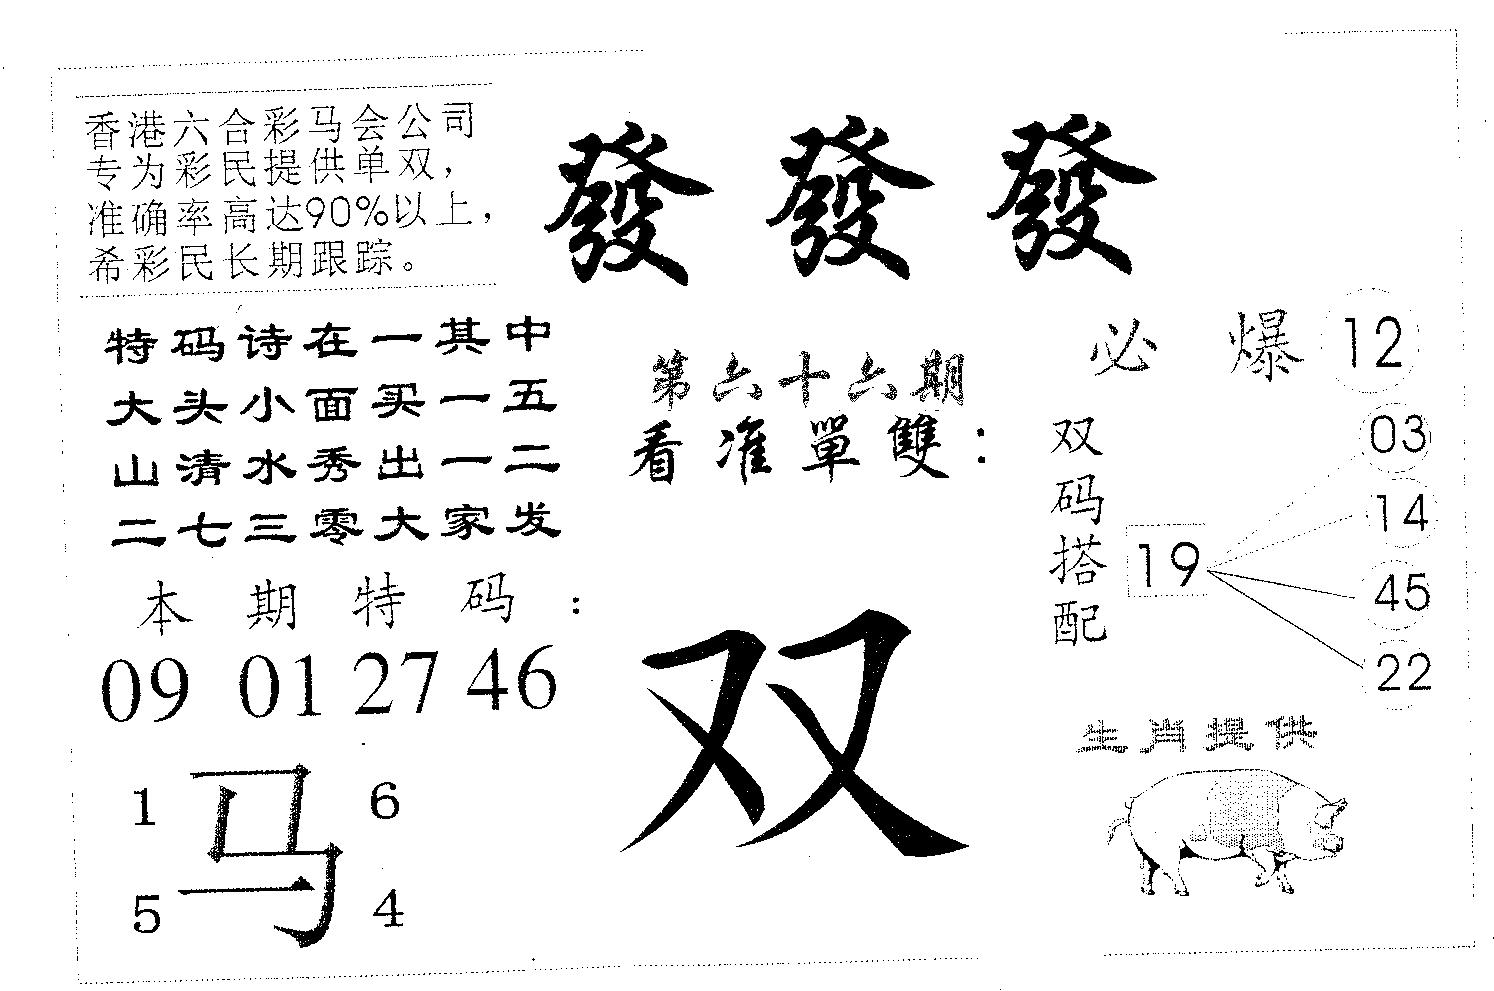 香港六合彩马会公司
专为彩民提供单双，
准确率高达90%以上，
希彩民长期跟踪。
發發發
特码诗在一其中
大头小面买一五
山清水秀出一二
二七三零大家发
第六十六期
看准單雙：
必爆 12
双码搭配
19
03
14
45
22
本期特码：
09 01 27 46
双
1 马 6
5 4
生肖提供